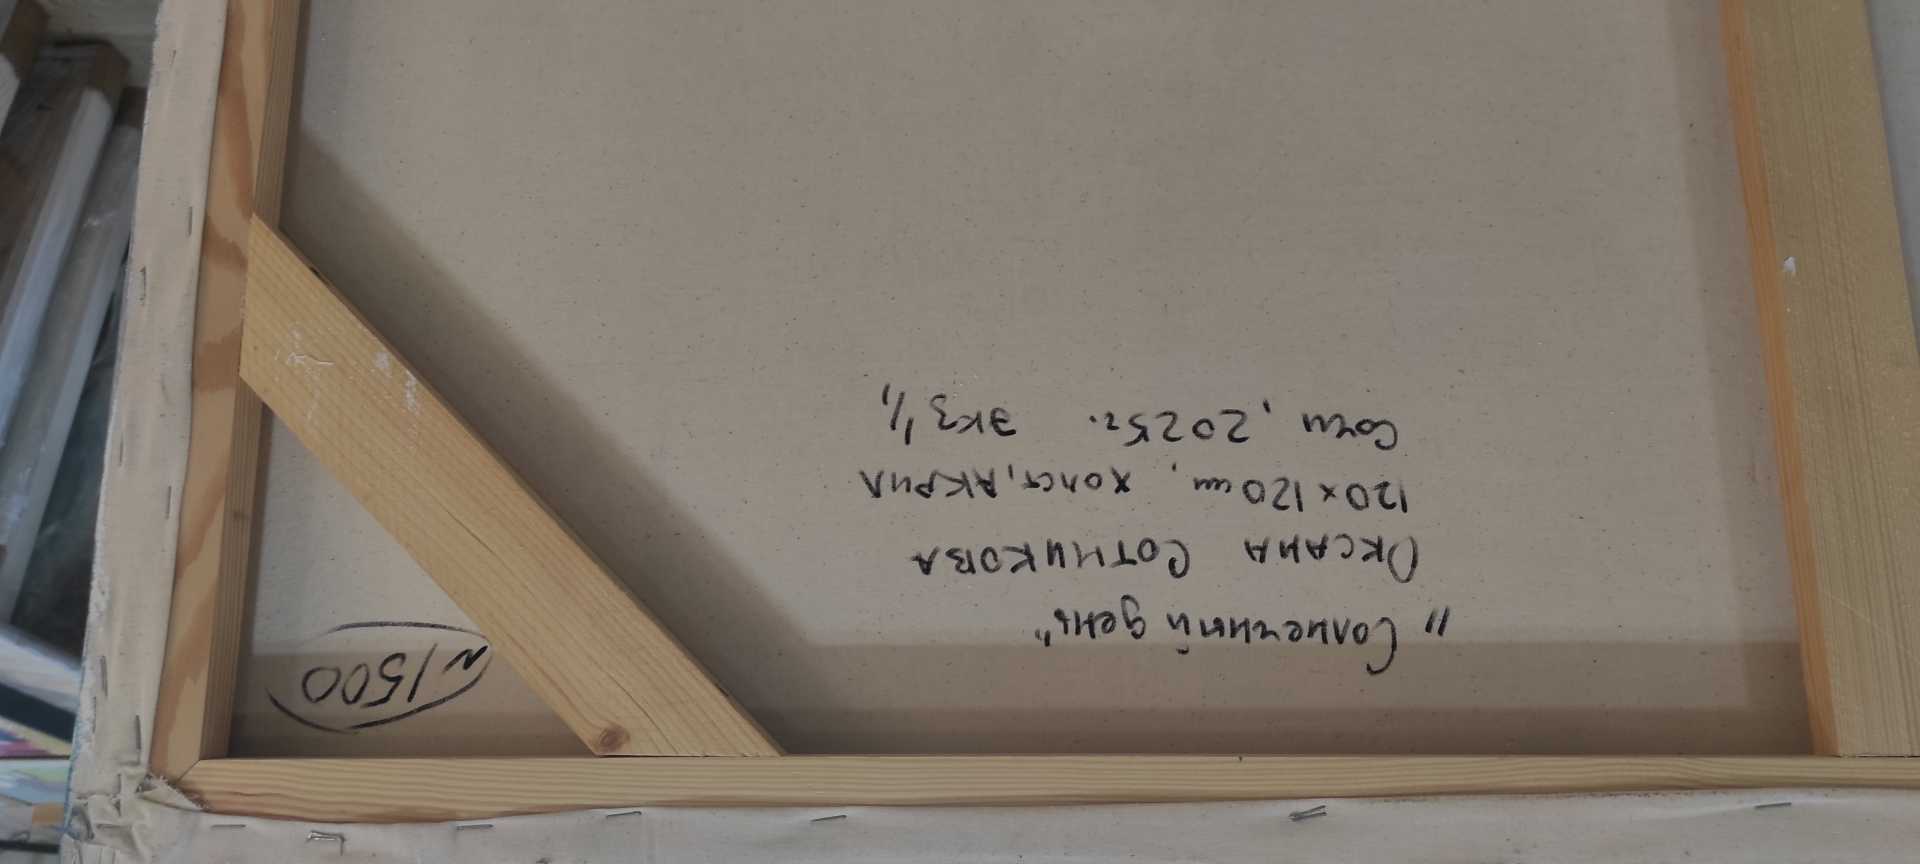 "Солнечный день"
Оксана Сотникова
120 х 120 см, холст, акрил
Сочи, 2025г. экз 1/1
~1500